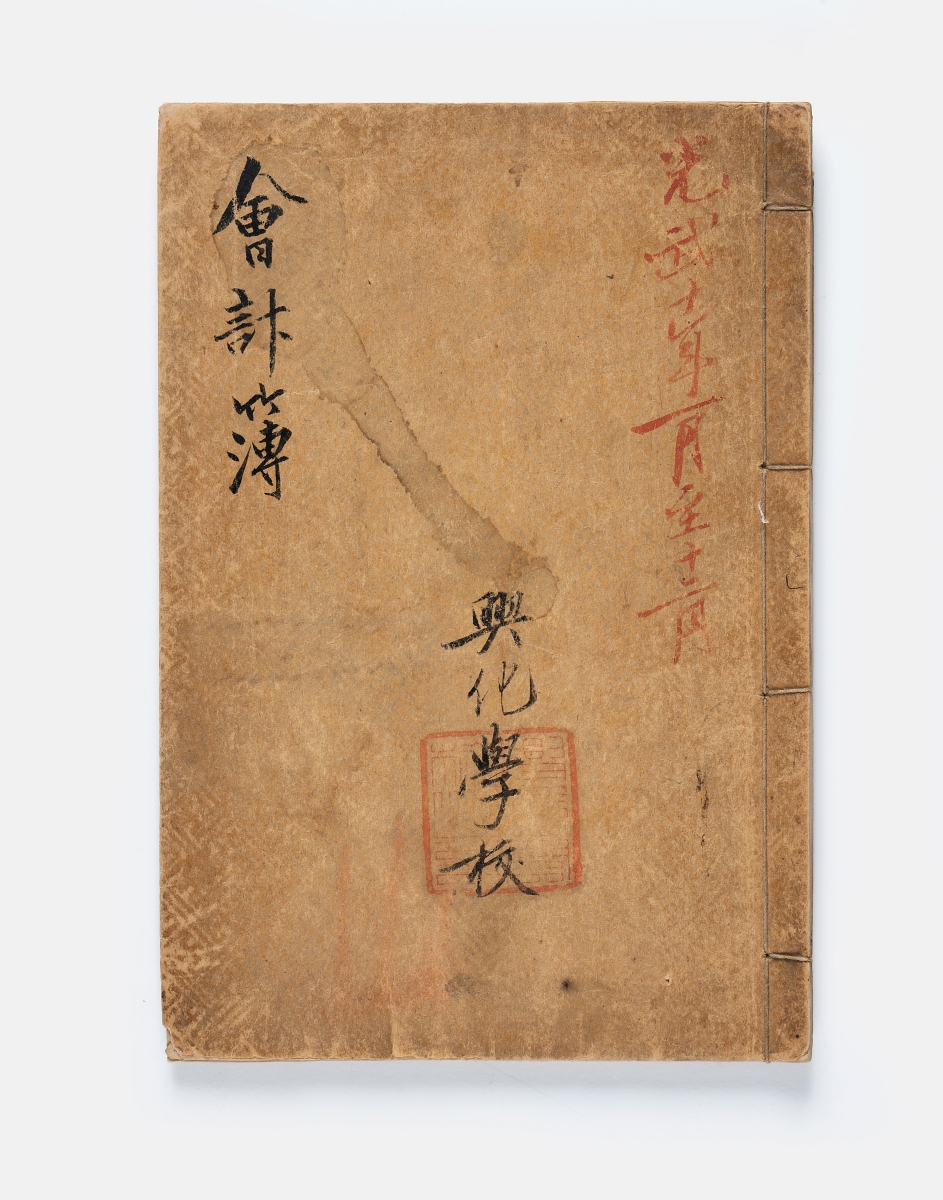 光武十年一月至十二月
興化學校
會計簿